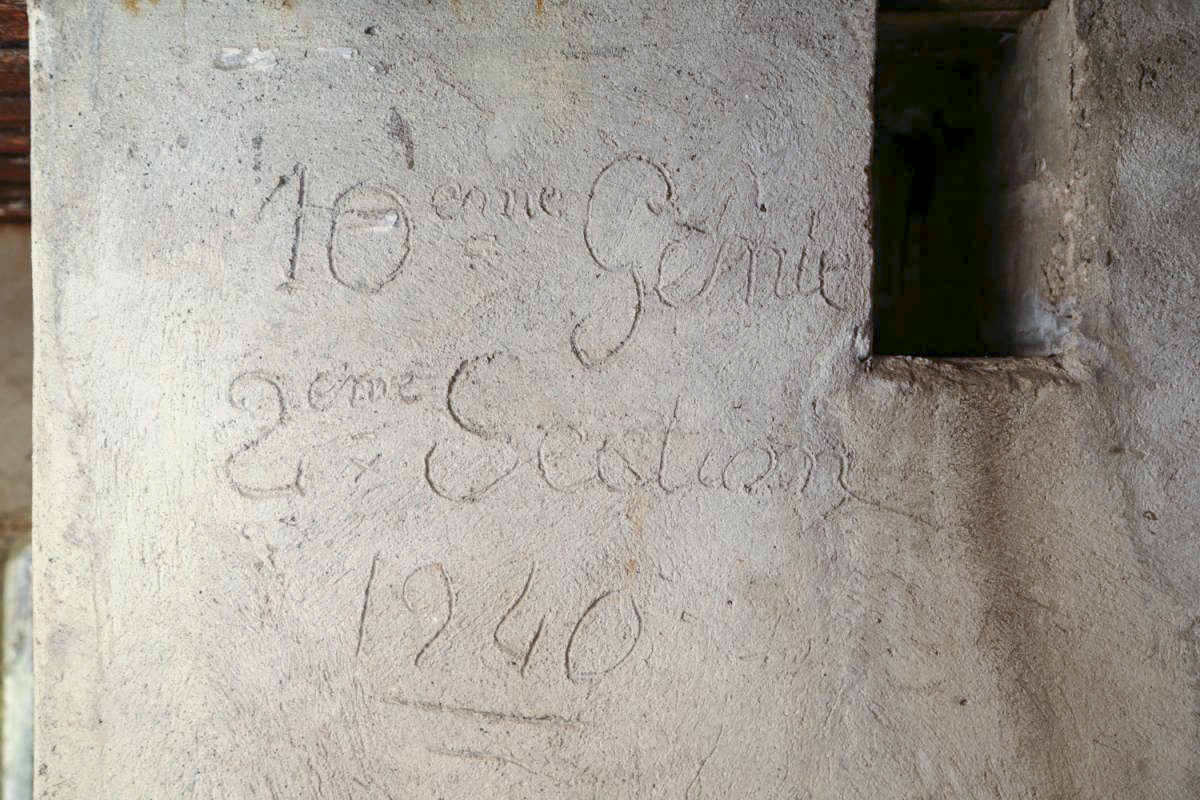 10eme Génie
2eme Section
1940